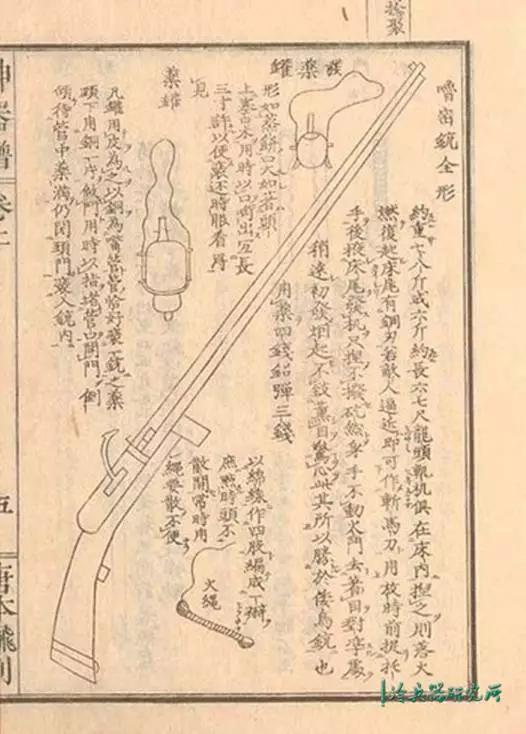 嚕密銃全形
約重七八斤或六斤約長六七尺龍頭軌机俱在床內捏之則落火
燃復起床尾有鋼刃若敵人逼近即可作斬馬刀用放時前捉托
手後掖床尾發机只捏不撥砣然身手不動火門去著目對準處
稍遠初發烟起不致薰目驚心此其所以勝於倭鳥銃也
用藥四錢鉛彈三錢
發藥罐
形如蒸餅口大如
上塞口木用時以口啣出長
三寸許以便還時眼看得
見
藥罐
凡罐用皮為之以銅為嘴管管恰好一銃之藥
頭下用銅一片做門用時以指堵管口開門倒
傾待管中藥滿仍閉頭門入銃內
以綿線作四股編成一辮
庶燃時頭不
散開常時用
繩要散不便
火繩
神器譜 卷二
五
唐本翻刻
冷兵器研究所